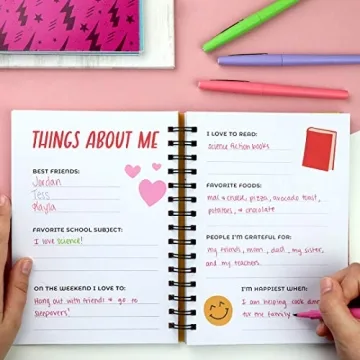 THINGS ABOUT ME
BEST FRIENDS:
Jordan
Tess
Kayla
FAVORITE SCHOOL SUBJECT:
I love science!
ON THE WEEKEND I LOVE TO:
Hang out with friends & go to
sleepovers!
I LOVE TO READ:
science fiction books
FAVORITE FOODS:
mac & cheese, pizza, avocado toast,
potatoes, & chocolate
PEOPLE I'M GRATEFUL FOR:
my friends, mom, dad, my sister,
and my teachers
I'M HAPPIEST WHEN:
I am helping cook dinner
for my family